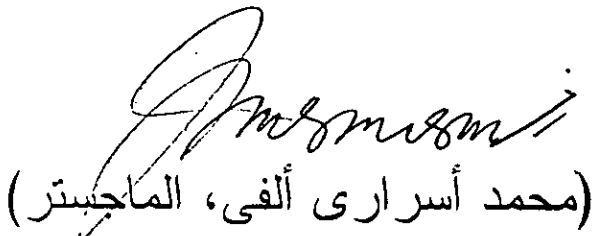 (محمد أسرارى ألفى، الماجستر)